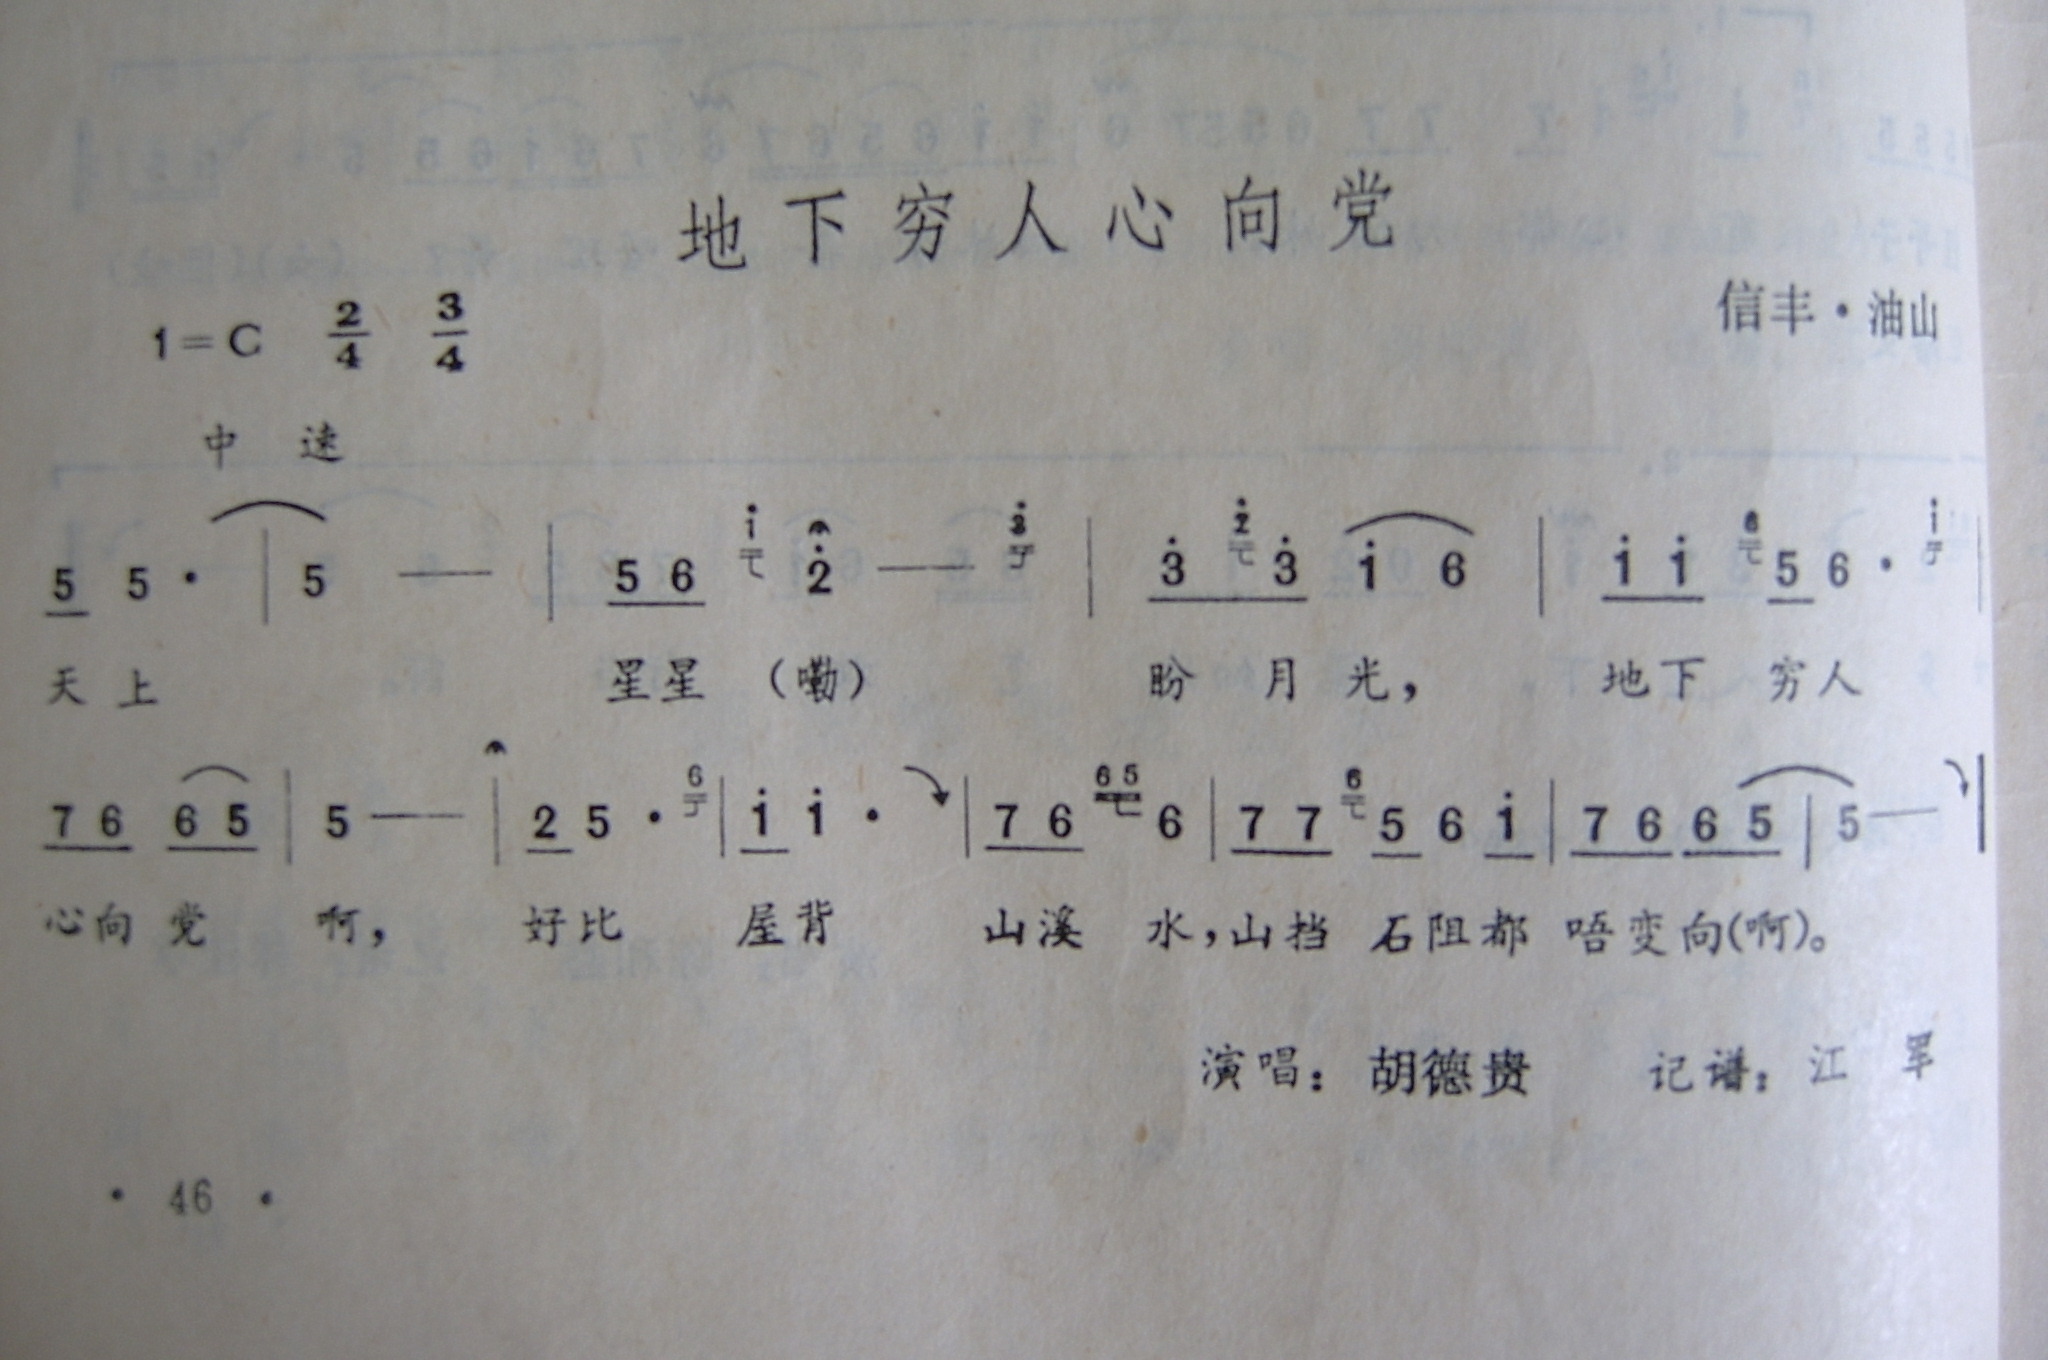 地下穷人心向党
信丰·油山
1=C 2/4 3/4
中速
5 5· | 5 — | 5 6 i 2 — 3 | 3 2 3 i 6 | i i 6 5 6· i |
天上 星星（嘞） 盼月光， 地下穷人
7 6 6 5 | 5 — | 2 5· 6 | i i· | 7 6 6 5 6 | 7 7 6 5 6 i | 7 6 6 5 | 5 — ‖
心向党 啊， 好比 屋背 山溪 水，山挡 石阻都 唔变向(啊)。
演唱：胡德贵 记谱：江
· 46 ·